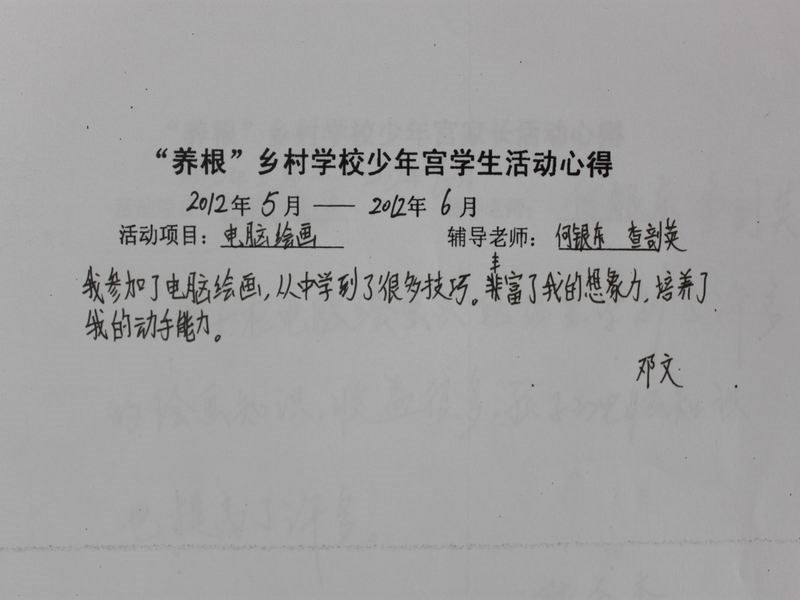 “养根”乡村学校少年宫学生活动心得
2012年 5 月 —— 2012年 6 月
活动项目：电脑绘画 辅导老师：何银东 查剖英
我参加了电脑绘画，从中学到了很多技巧。丰富了我的想象力，培养了
我的动手能力。
邓文